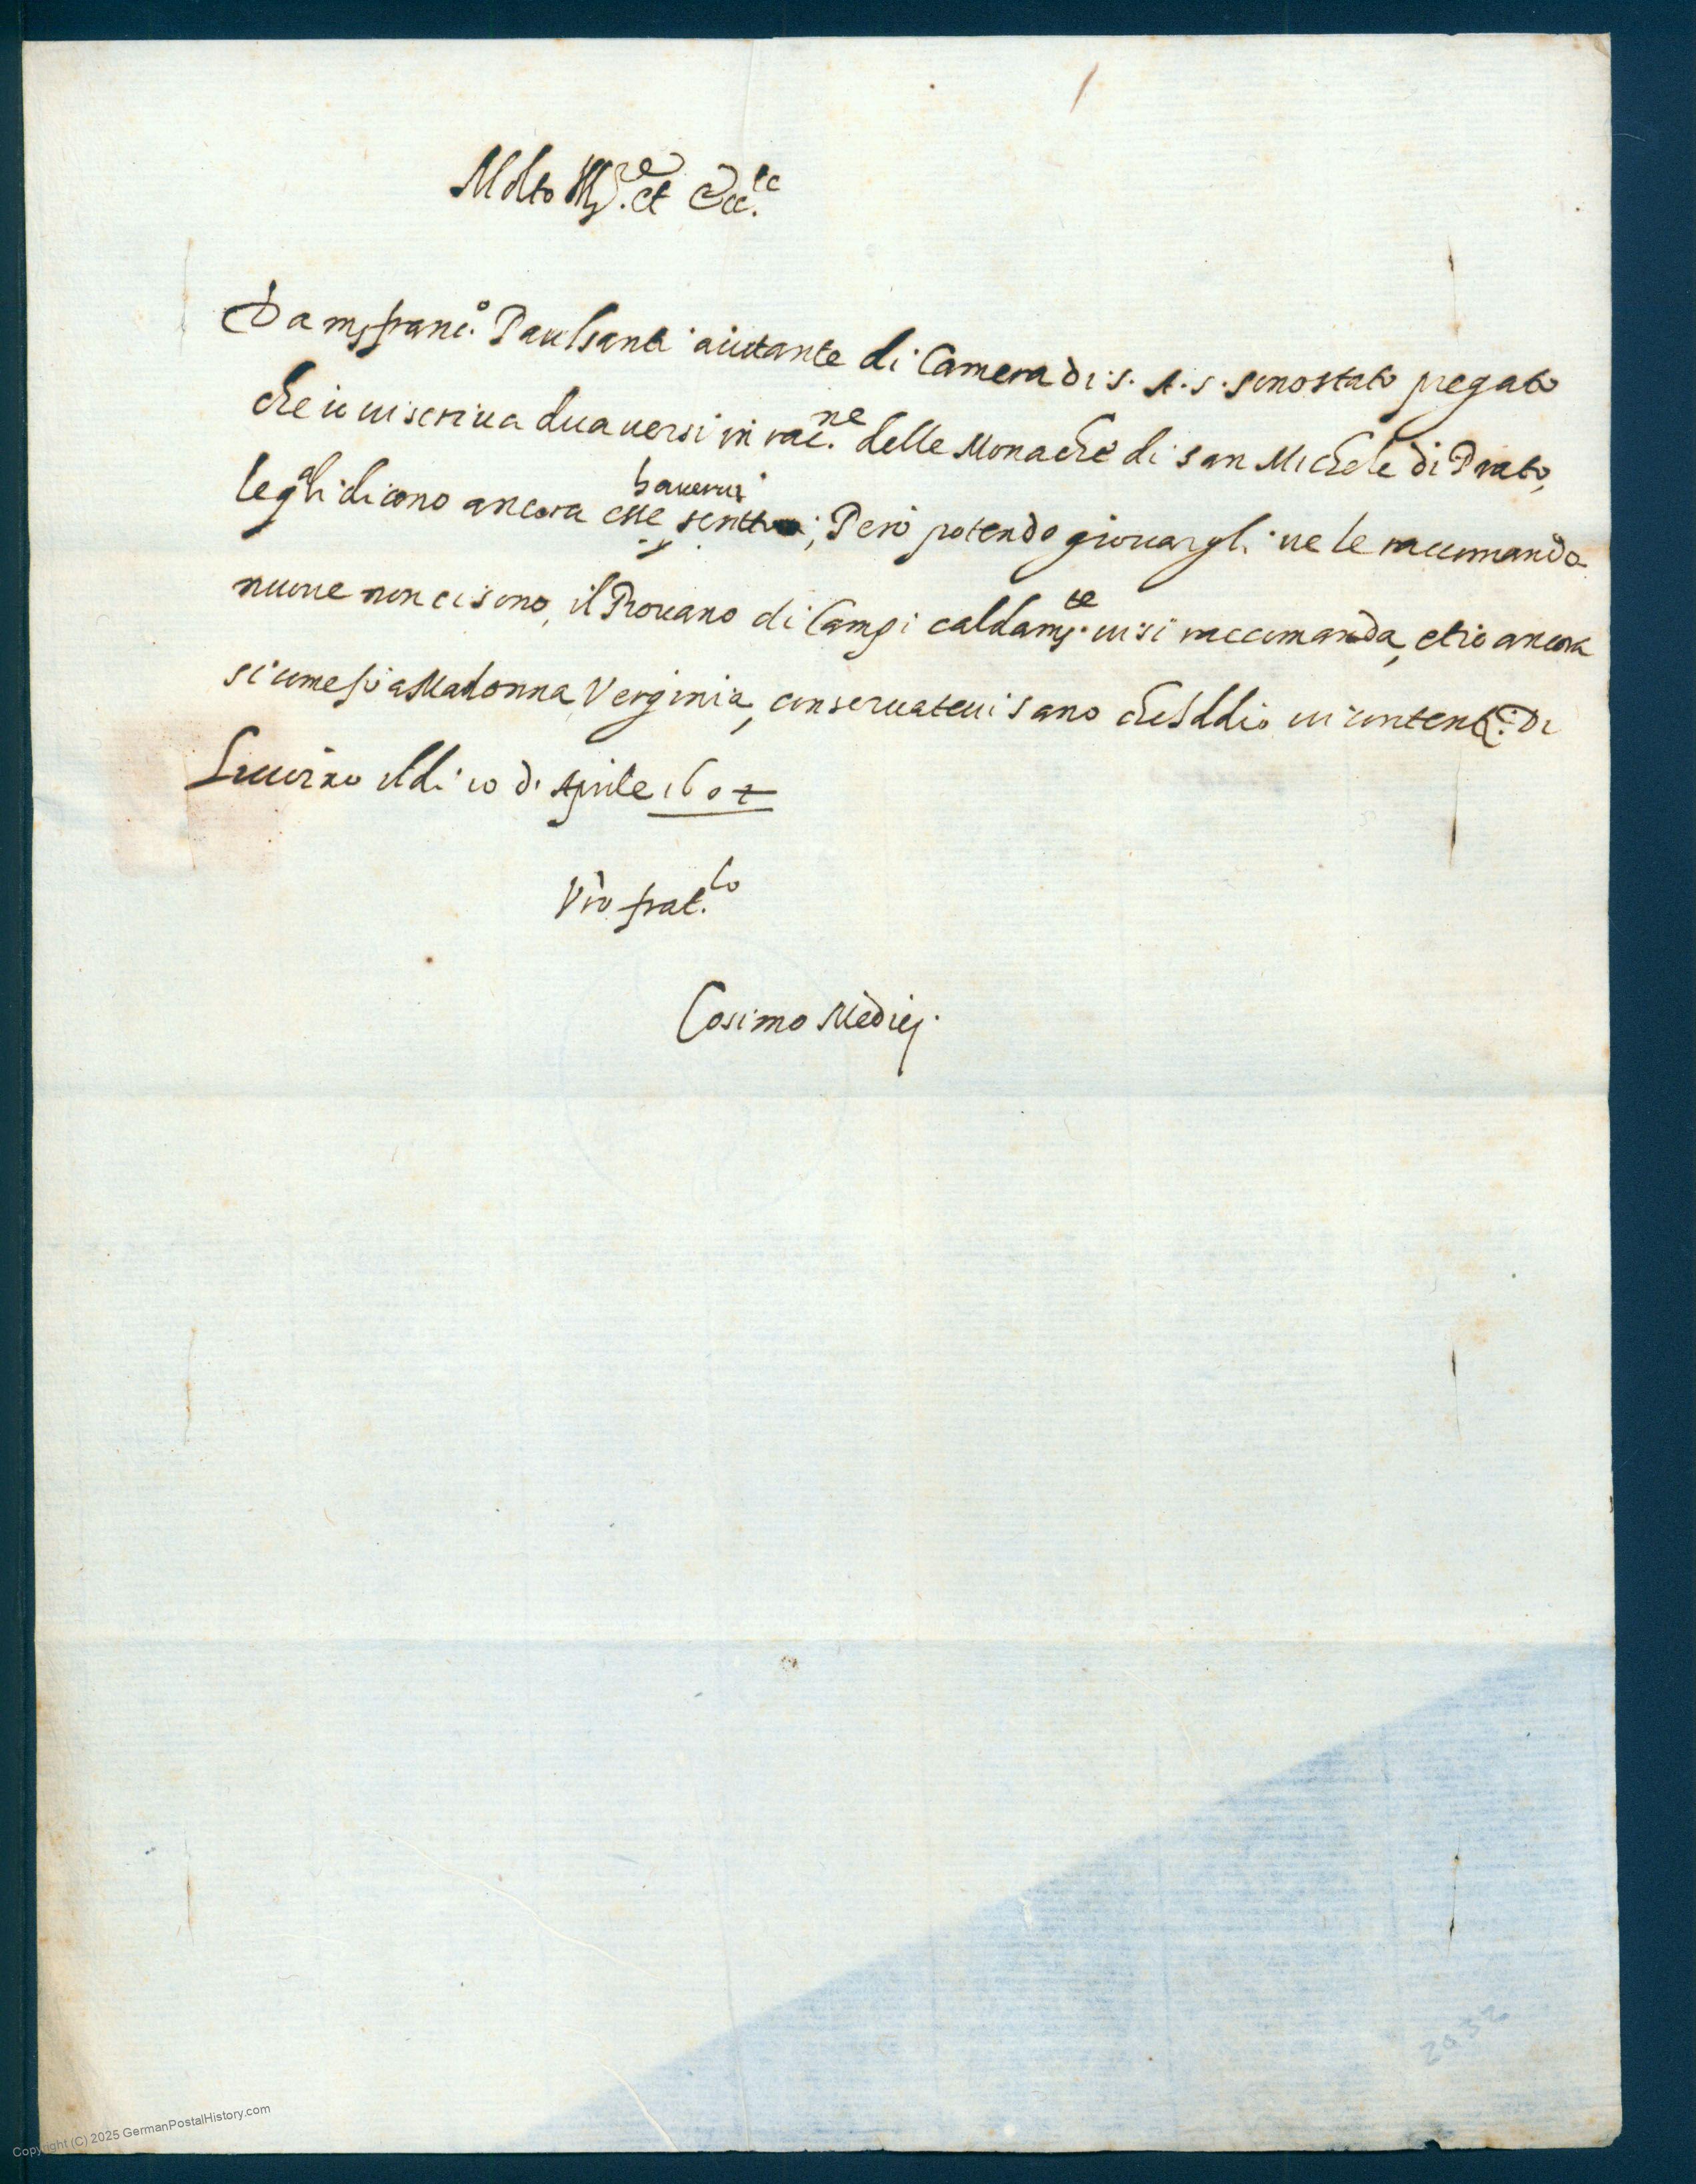 Molto Mg.re et Ecc.te
Da ms franc.o Paulsanti aiutante di Camera di S. A. S. sono stato pregato
che io vi scriva dua versi in rac.ne delle Monache di san Michele di Prato,
legli dicono ancora esse havervi scritto; Però potendo giovargli ve le raccomando
nuove non ci sono, il Provano di Campi caldam.te vi si raccomanda, et io ancora
si come fo a Madonna Verginia, conservatevi sano che Iddio vi contenti. Di
il di 10 di Aprile 1602
Vro frat.lo
Cosimo Medici
2032
Copyright (C) 2025 GermanPostalHistory.com